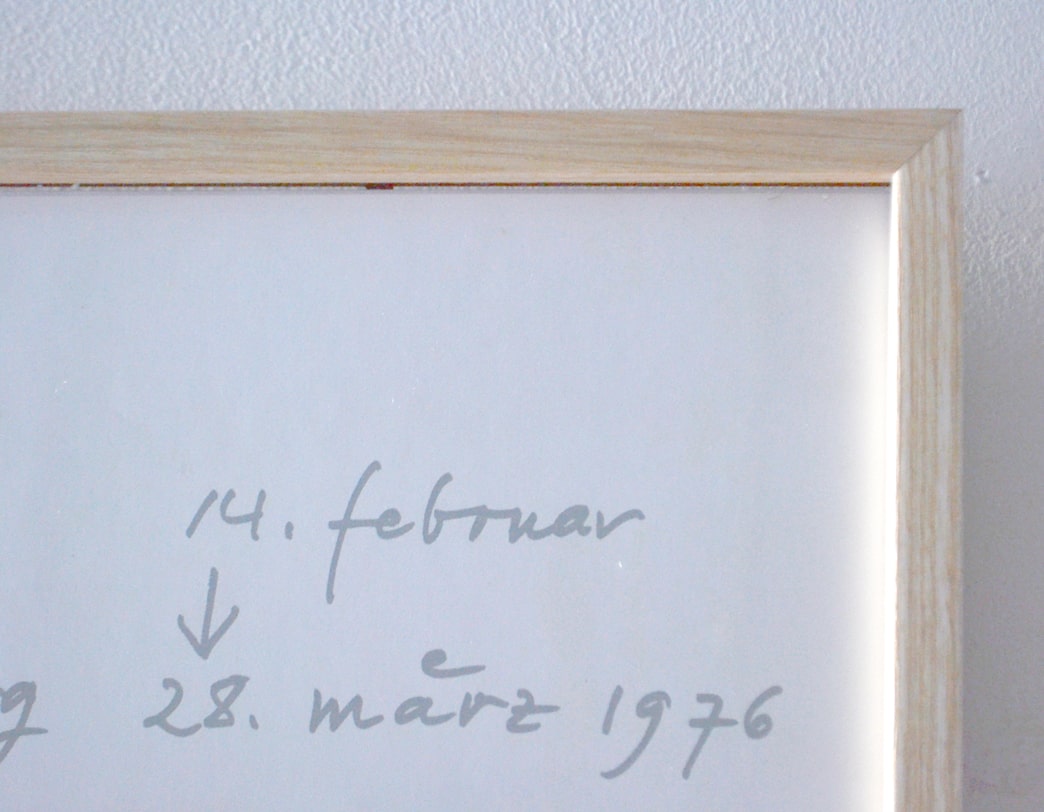 14. februar
↓
g 28. märz 1976